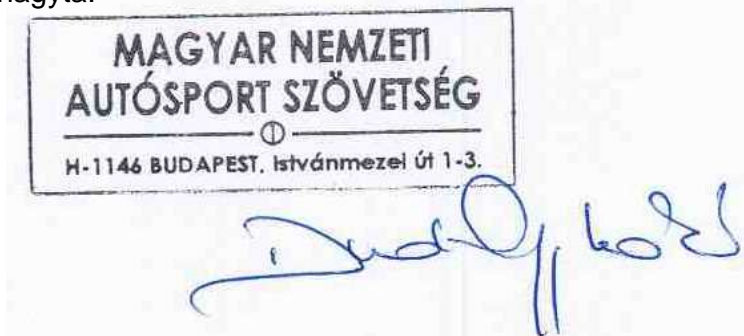 MAGYAR NEMZETI
AUTÓSPORT SZÖVETSÉG
①
H-1146 BUDAPEST, Istvánmezei út 1-3.